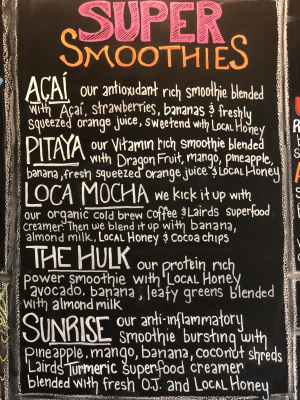 SUPER
SMOOTHIES
AÇAÍ our antioxidant rich smoothie blended
with Açaí, strawberries, bananas & freshly
squeezed orange juice, sweetend with LOCAL Honey
PITAYA our Vitamin rich smoothie blended
with Dragon Fruit, mango, pineapple,
banana, fresh squeezed orange juice & LOCAL Honey
LOCA MOCHA we kick it up with
our organic cold brew coffee & Lairds superfood
creamer. Then we blend it up with banana,
almond milk, LOCAL Honey & Cocoa chips
THE HULK our protein rich
power smoothie with LOCAL Honey
avocado, banana, leafy greens blended
with almond milk
SUNRISE our anti-inflammatory
smoothie bursting with
pineapple, mango, banana, coconut shreds
Lairds Turmeric superfood creamer
blended with fresh O.J. and LOCAL Honey